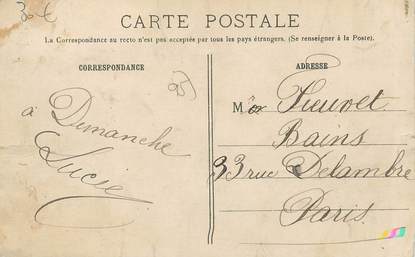 30 €
CARTE POSTALE
La Correspondance au recto n'est pas acceptée par tous les pays étrangers. (Se renseigner à la Poste).
CORRESPONDANCE
25
à Dimanche
Lucie
ADRESSE
M
Bains
33 rue Delambre
Paris